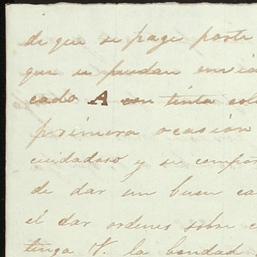 de que se page parte
que se puedan envia
cado A con tinta col
primera ocasión
cuidadoso y se compor
de dar un buen ca
el dar ordenes sobre e
tenga V. la bondad